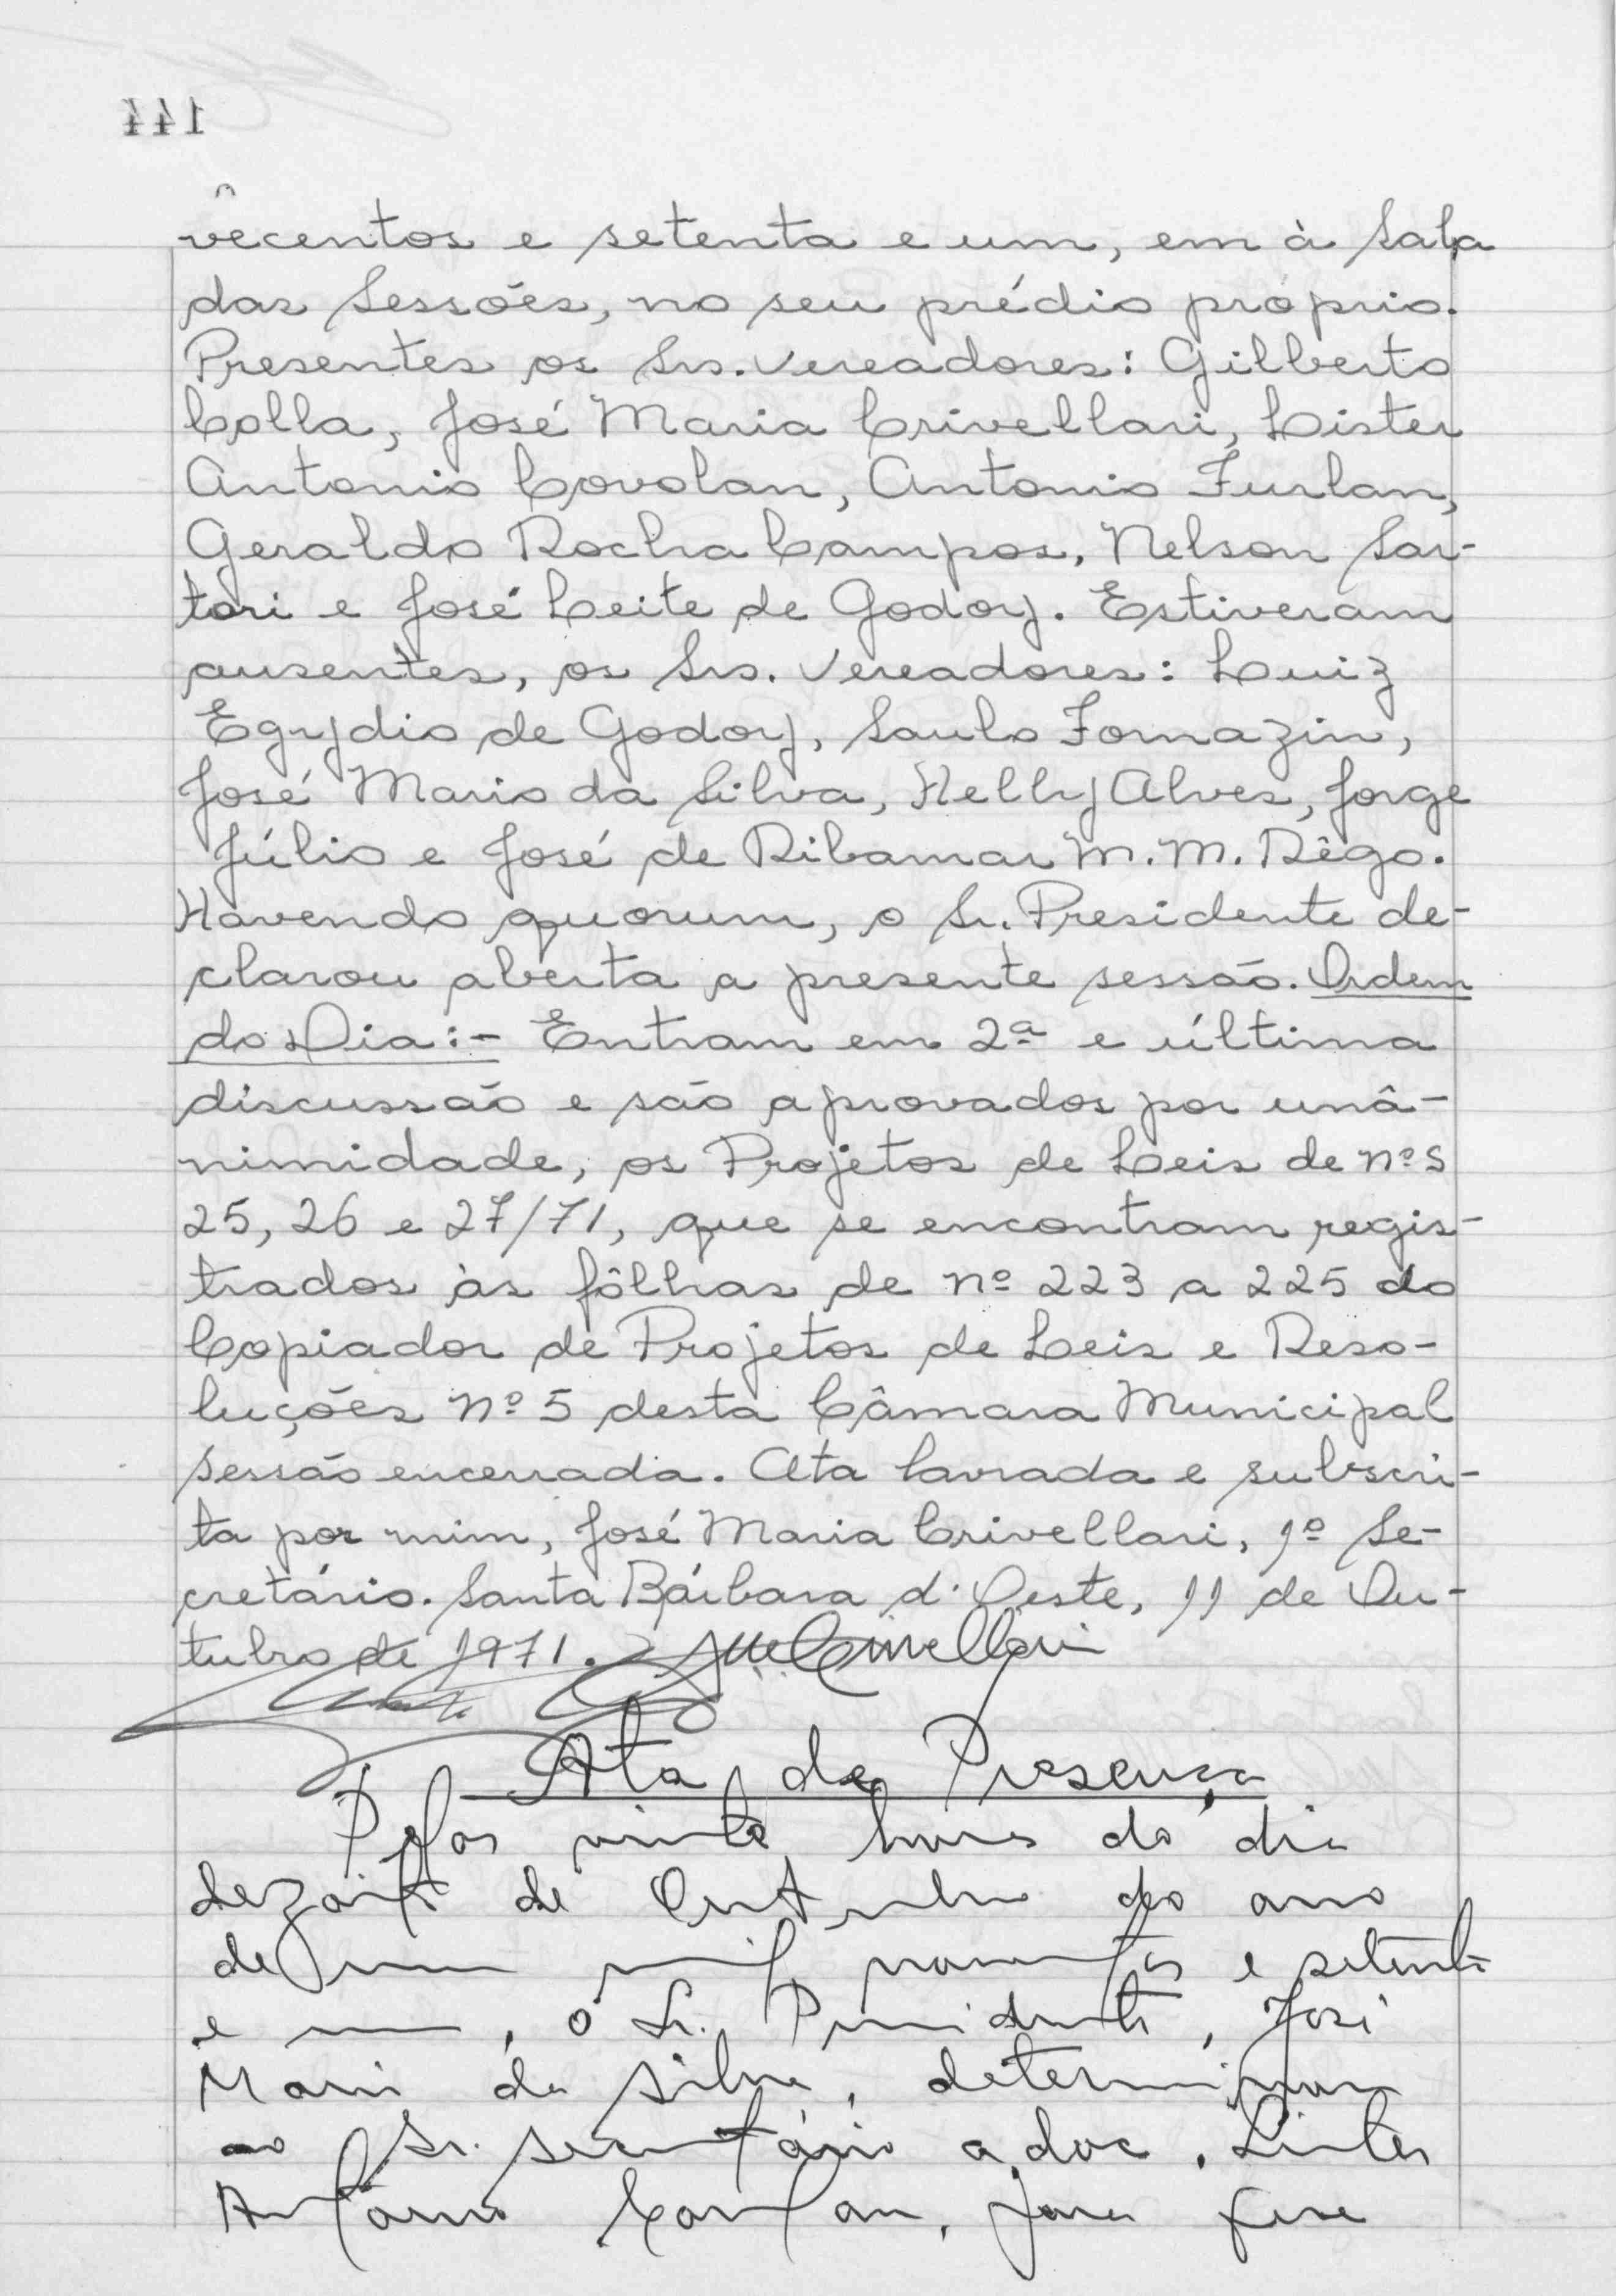 144
vecentos e setenta e um, em à Sala
das Sessões, no seu prédio próprio.
Presentes os Srs. Vereadores: Gilberto
Colla, José Maria Crivellari, Lister
Antonio Covolan, Antonio Furlan,
Geraldo Rocha Campos, Nelson Sar-
tori e José Leite de Godoy. Estiveram
ausentes, os Srs. Vereadores: Luiz
Egydio de Godoy, Saulo Fornazin,
José Mario da Silva, Helly Alves, Jorge
Júlio e José de Ribamar M. M. Rêgo.
Havendo quorum, o Sr. Presidente de-
clarou aberta a presente sessão. Ordem
do Dia:- Entram em 2ª e última
discussão e são aprovados por unâ-
nimidade, os Projetos de Leis de nºs
25, 26 e 27/71, que se encontram regis-
trados às fôlhas de nº 223 a 225 do
Copiador de Projetos de Leis e Reso-
luções nº 5 desta Câmara Municipal
Sessão encerrada. Ata lavrada e subscri-
ta por mim, José Maria Crivellari, 1º Se-
cretário. Santa Bárbara d'Oeste, 11 de Ou-
tubro de 1971. JMCrivellari
Ata de Presença
Pelas vinte horas do dia
dezoito de Outubro do ano
de um mil novecentos e setenta
e um, o Sr. Presidente, José
Mario da Silva, determinou
ao Sr. secretário adoc, Lister
Antonio Covolan, para